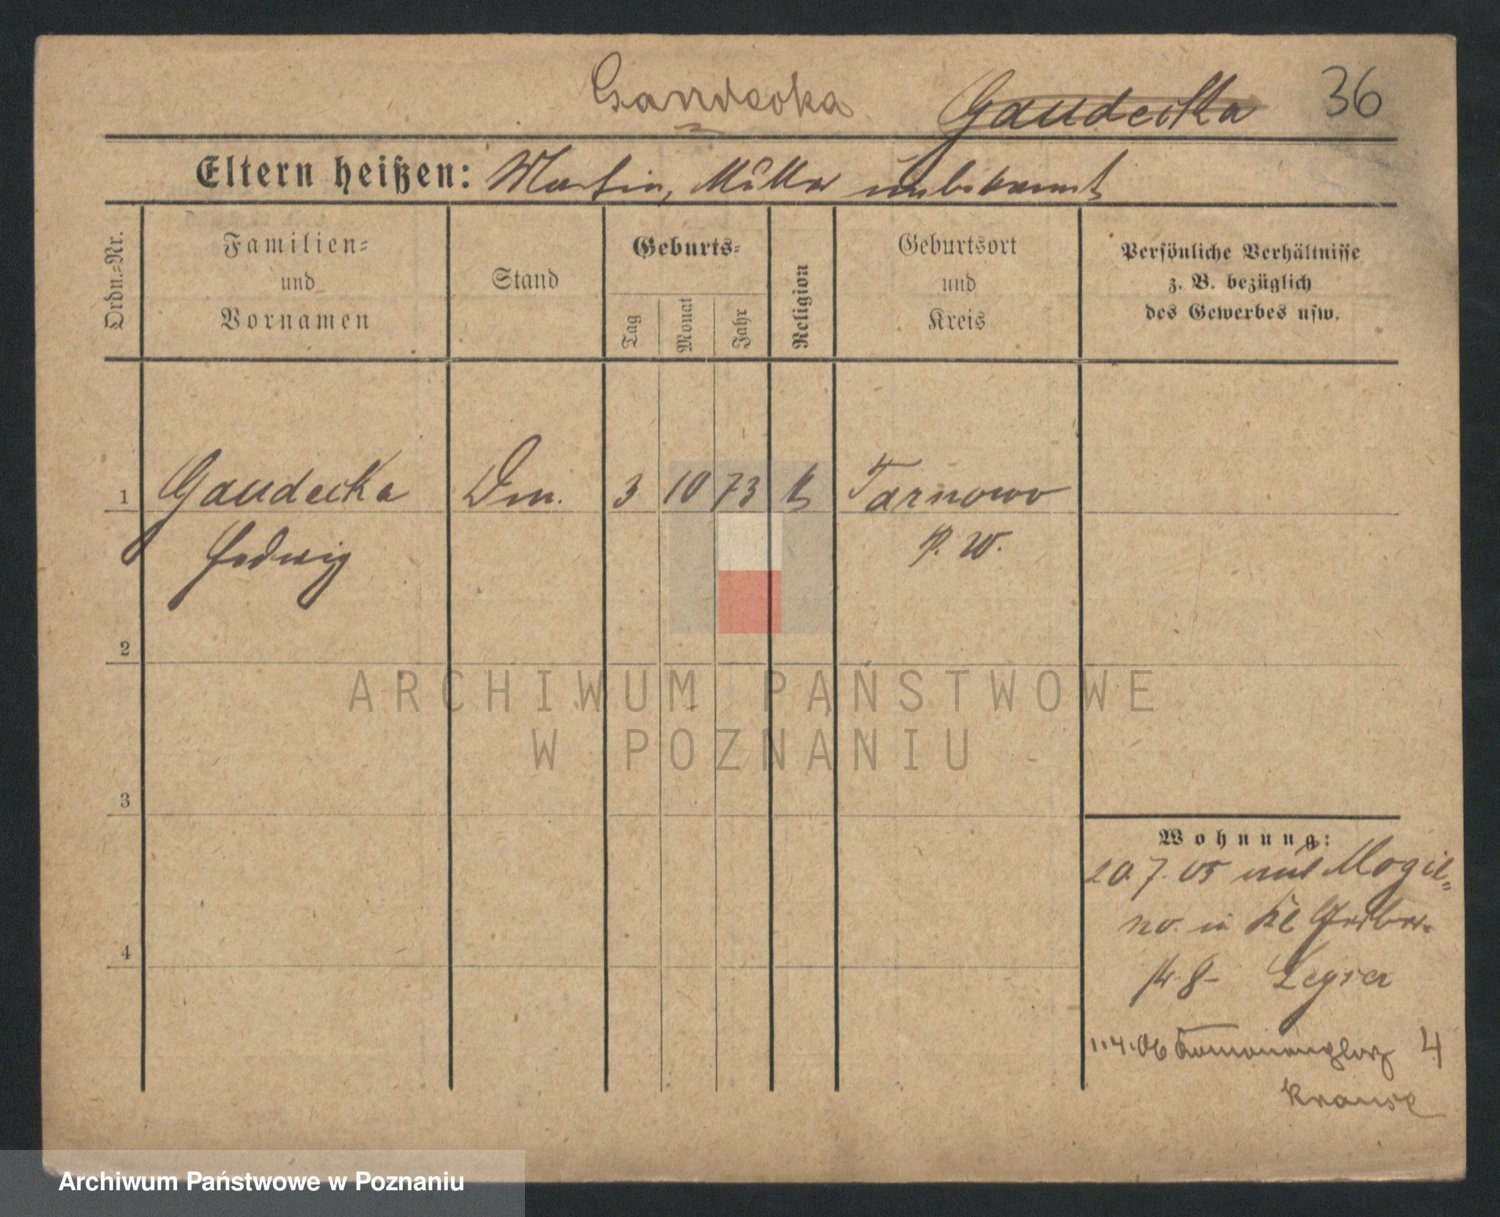 Gandecka Gaudecka 36
Eltern heißen: Martin, Mutter unbekannt
Ordn.-Nr.
Familien-
und
Vornamen
Stand
Geburts-
Tag
Monat
Jahr
Religion
Geburtsort
und
Kreis
Persönliche Verhältnisse
z. B. bezüglich
des Gewerbes usw.
1 Gaudecka Dm. 3 10 73 k Tarnowo
Hedwig P. W.
2
ARCHIWUM PAŃSTWOWE
W POZNANIU
3
Wohnung:
20.7.05 aus Mogil-
no. in Kl Gerber-
8-
4
1.4.06 4
Krause
Archiwum Państwowe w Poznaniu